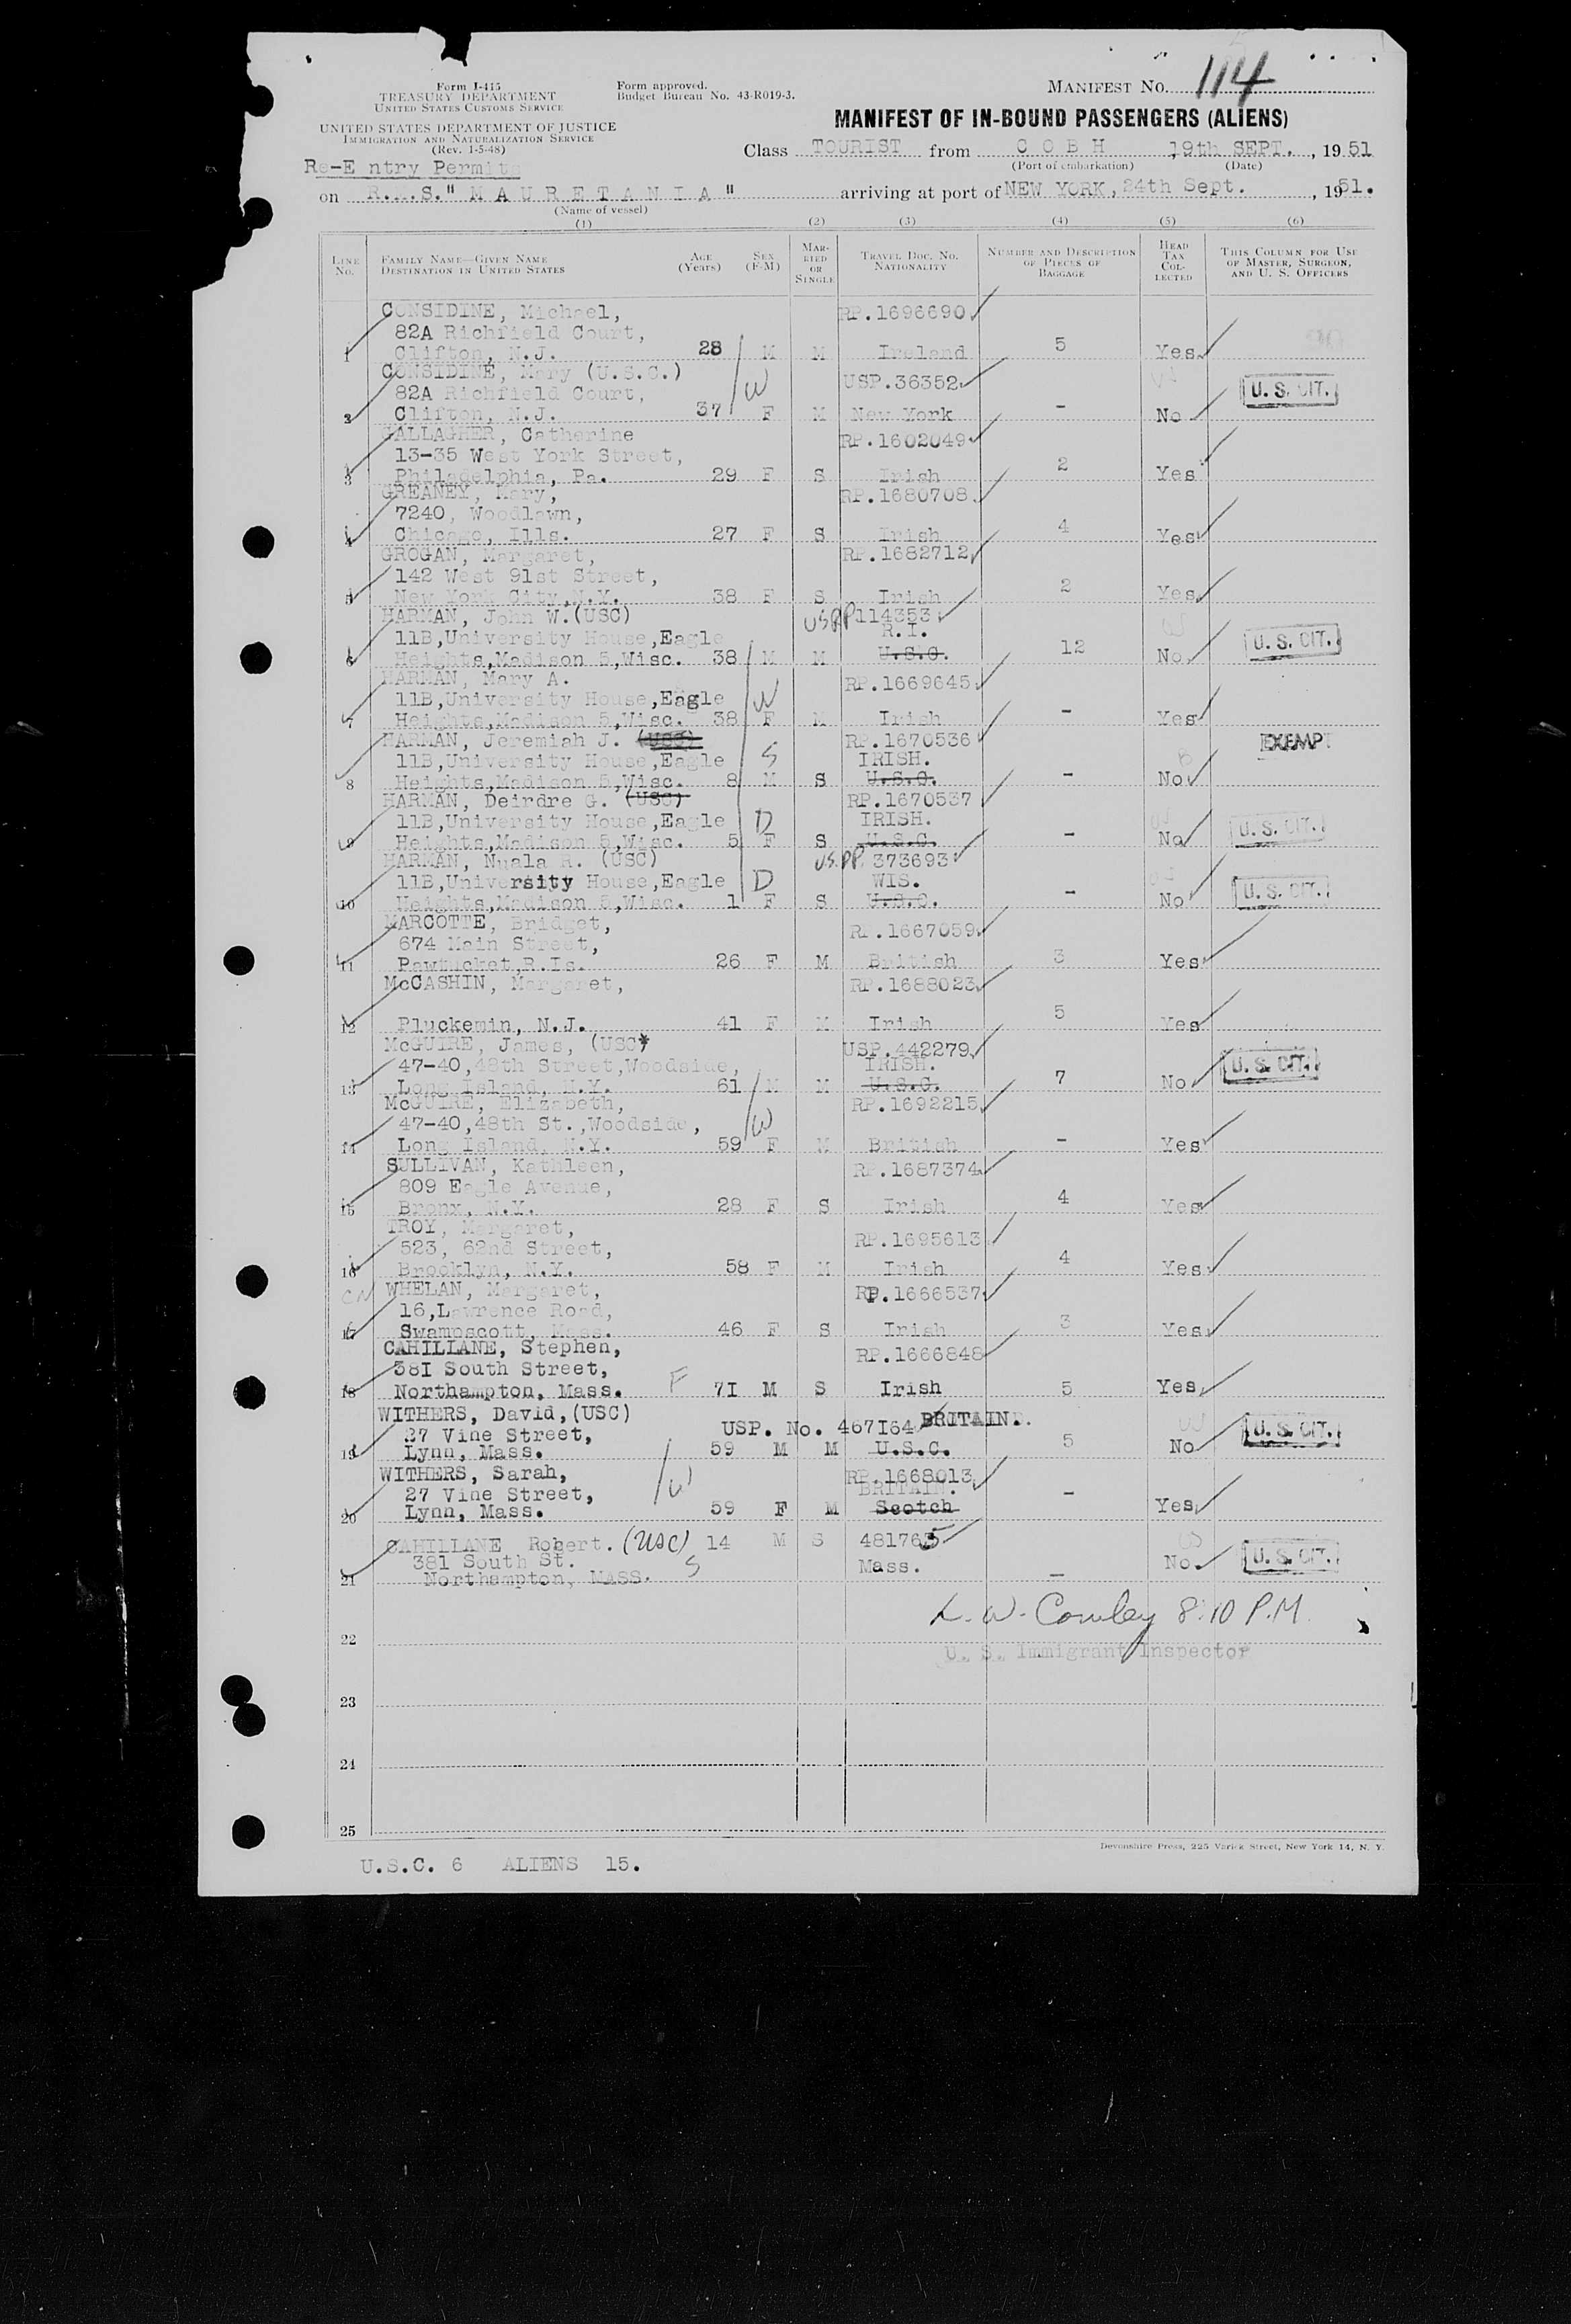 Form I-415
TREASURY DEPARTMENT
UNITED STATES CUSTOMS SERVICE
UNITED STATES DEPARTMENT OF JUSTICE
IMMIGRATION AND NATURALIZATION SERVICE
(Rev. 1-5-48)
Form approved.
Budget Bureau No. 43-R019-3.
MANIFEST NO. 114
MANIFEST OF IN-BOUND PASSENGERS (ALIENS)
Class TOURIST from C O B H , 19th SEPT. , 19 51
(Port of embarkation) (Date)
Re-E ntry Permits
on R.M.S." M A U R E T A N I A " arriving at port of NEW YORK, 24th Sept. , 19 51.
(Name of vessel)
(1) (2) (3) (4) (5) (6)
LINE NO. FAMILY NAME—GIVEN NAME DESTINATION IN UNITED STATES AGE (Years) SEX (F-M) MARRIED OR SINGLE TRAVEL DOC. NO. NATIONALITY NUMBER AND DESCRIPTION OF PIECES OF BAGGAGE HEAD TAX COLLECTED THIS COLUMN FOR USE OF MASTER, SURGEON, AND U. S. OFFICERS
CONSIDINE, Michael, RP.1696690
82A Richfield Court,
1 Clifton, N.J. 28 M M Ireland 5 Yes
CONSIDINE, Mary (U.S.C.) W USP.36352 U. S. CIT.
82A Richfield Court,
2 Clifton, N.J. 37 F M New York - No
GALLAGHER, Catherine RP.1602049
13-35 West York Street,
3 Philadelphia, Pa. 29 F S Irish 2 Yes
GREANEY, Mary, RP.1680708
7240, Woodlawn,
4 Chicago, Ills. 27 F S Irish 4 Yes
GROGAN, Margaret, RP.1682712
142 West 91st Street,
5 New York City,N.Y. 38 F S Irish 2 Yes
HARMAN, John W.(USC) USPP 114353
11B,University House,Eagle R.I. U. S. CIT.
6 Heights,Madison 5,Wisc. 38 M M U.S.C. 12 No
HARMAN, Mary A. RP.1669645
11B,University House,Eagle W
7 Heights,Madison 5,Wisc. 38 F M Irish - Yes
HARMAN, Jeremiah J. (USC) RP.1670536 EXEMPT
11B,University House,Eagle S IRISH.
8 Heights,Madison 5,Wisc. 8 M S U.S.C. - No
HARMAN, Deirdre G. (USC) RP.1670537
11B,University House,Eagle D IRISH. U. S. CIT.
9 Heights,Madison 5,Wisc. 5 F S U.S.C. - No
HARMAN, Nuala R. (USC) US.PP. 373693
11B,University House,Eagle D WIS. U. S. CIT.
10 Heights,Madison 5,Wisc. 1 F S U.S.C. - No
MARCOTTE, Bridget, RP.1667059
674 Main Street,
11 Pawtucket,R.Is. 26 F M British 3 Yes
McCASHIN, Margaret, RP.1688023
12 Pluckemin, N.J. 41 F M Irish 5 Yes
McGUIRE, James, (USC) USP.442279
47-40,48th Street,Woodside, IRISH. U. S. CIT.
13 Long Island, N.Y. 61 M M U.S.C. 7 No
McGUIRE, Elizabeth, RP.1692215
47-40,48th St.,Woodside, W
14 Long Island, N.Y. 59 F M British - Yes
SULLIVAN, Kathleen, RP.1687374
809 Eagle Avenue,
15 Bronx, N.Y. 28 F S Irish 4 Yes
TROY, Margaret, RP.1695613
523, 62nd Street,
16 Brooklyn, N.Y. 58 F M Irish 4 Yes
WHELAN, Margaret, RP.1666537
16,Lawrence Road,
17 Swampscott, Mass. 46 F S Irish 3 Yes
CAHILLANE, Stephen, RP.1666848
38I South Street,
18 Northampton, Mass. F 7I M S Irish 5 Yes
WITHERS, David,(USC) USP. No. 467I64 BRITAIN. U. S. CIT.
27 Vine Street,
19 Lynn, Mass. 59 M M U.S.C. 5 No
WITHERS, Sarah, RP.1668013
27 Vine Street, W BRITAIN.
20 Lynn, Mass. 59 F M Scotch - Yes
CAHILLANE Robert. (USC) 14 M S 481765
381 South St. S Mass. No. U. S. CIT.
21 Northampton, MASS. -
L. W. Cowley 8:10 P.M.
22
U. S. Immigrant Inspector
23
24
25
Devonshire Press, 225 Varick Street, New York 14, N. Y.
U.S.C. 6 ALIENS 15.